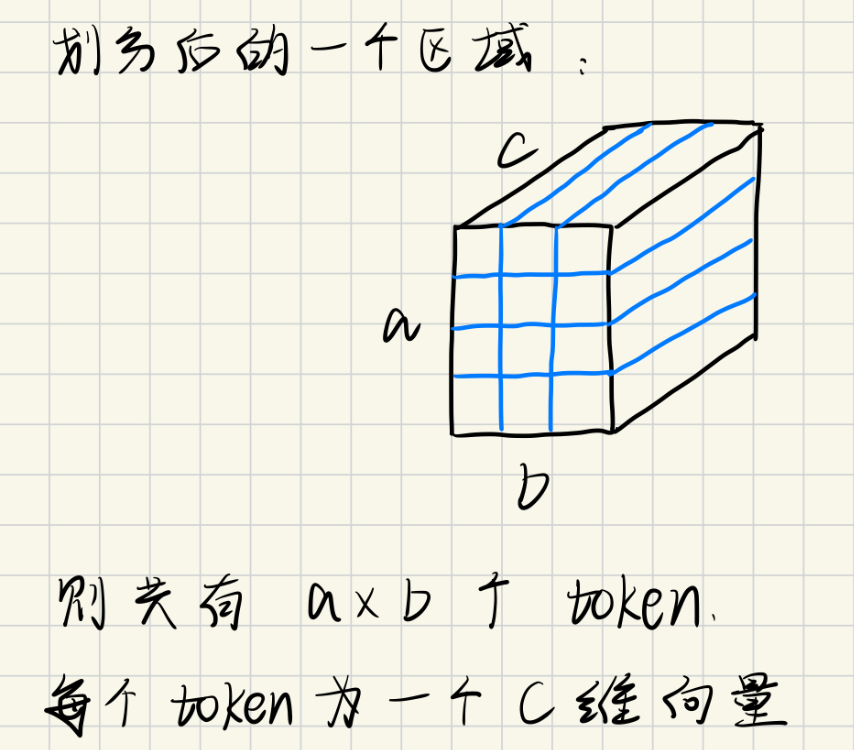 划分后的一个区域：
c
a
b
则共有 a×b 个 token.
每个 token 为一个 C 维向量